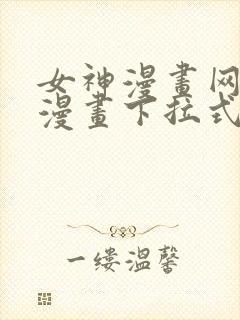 女神漫畫网
漫畫下拉式
一缕温馨